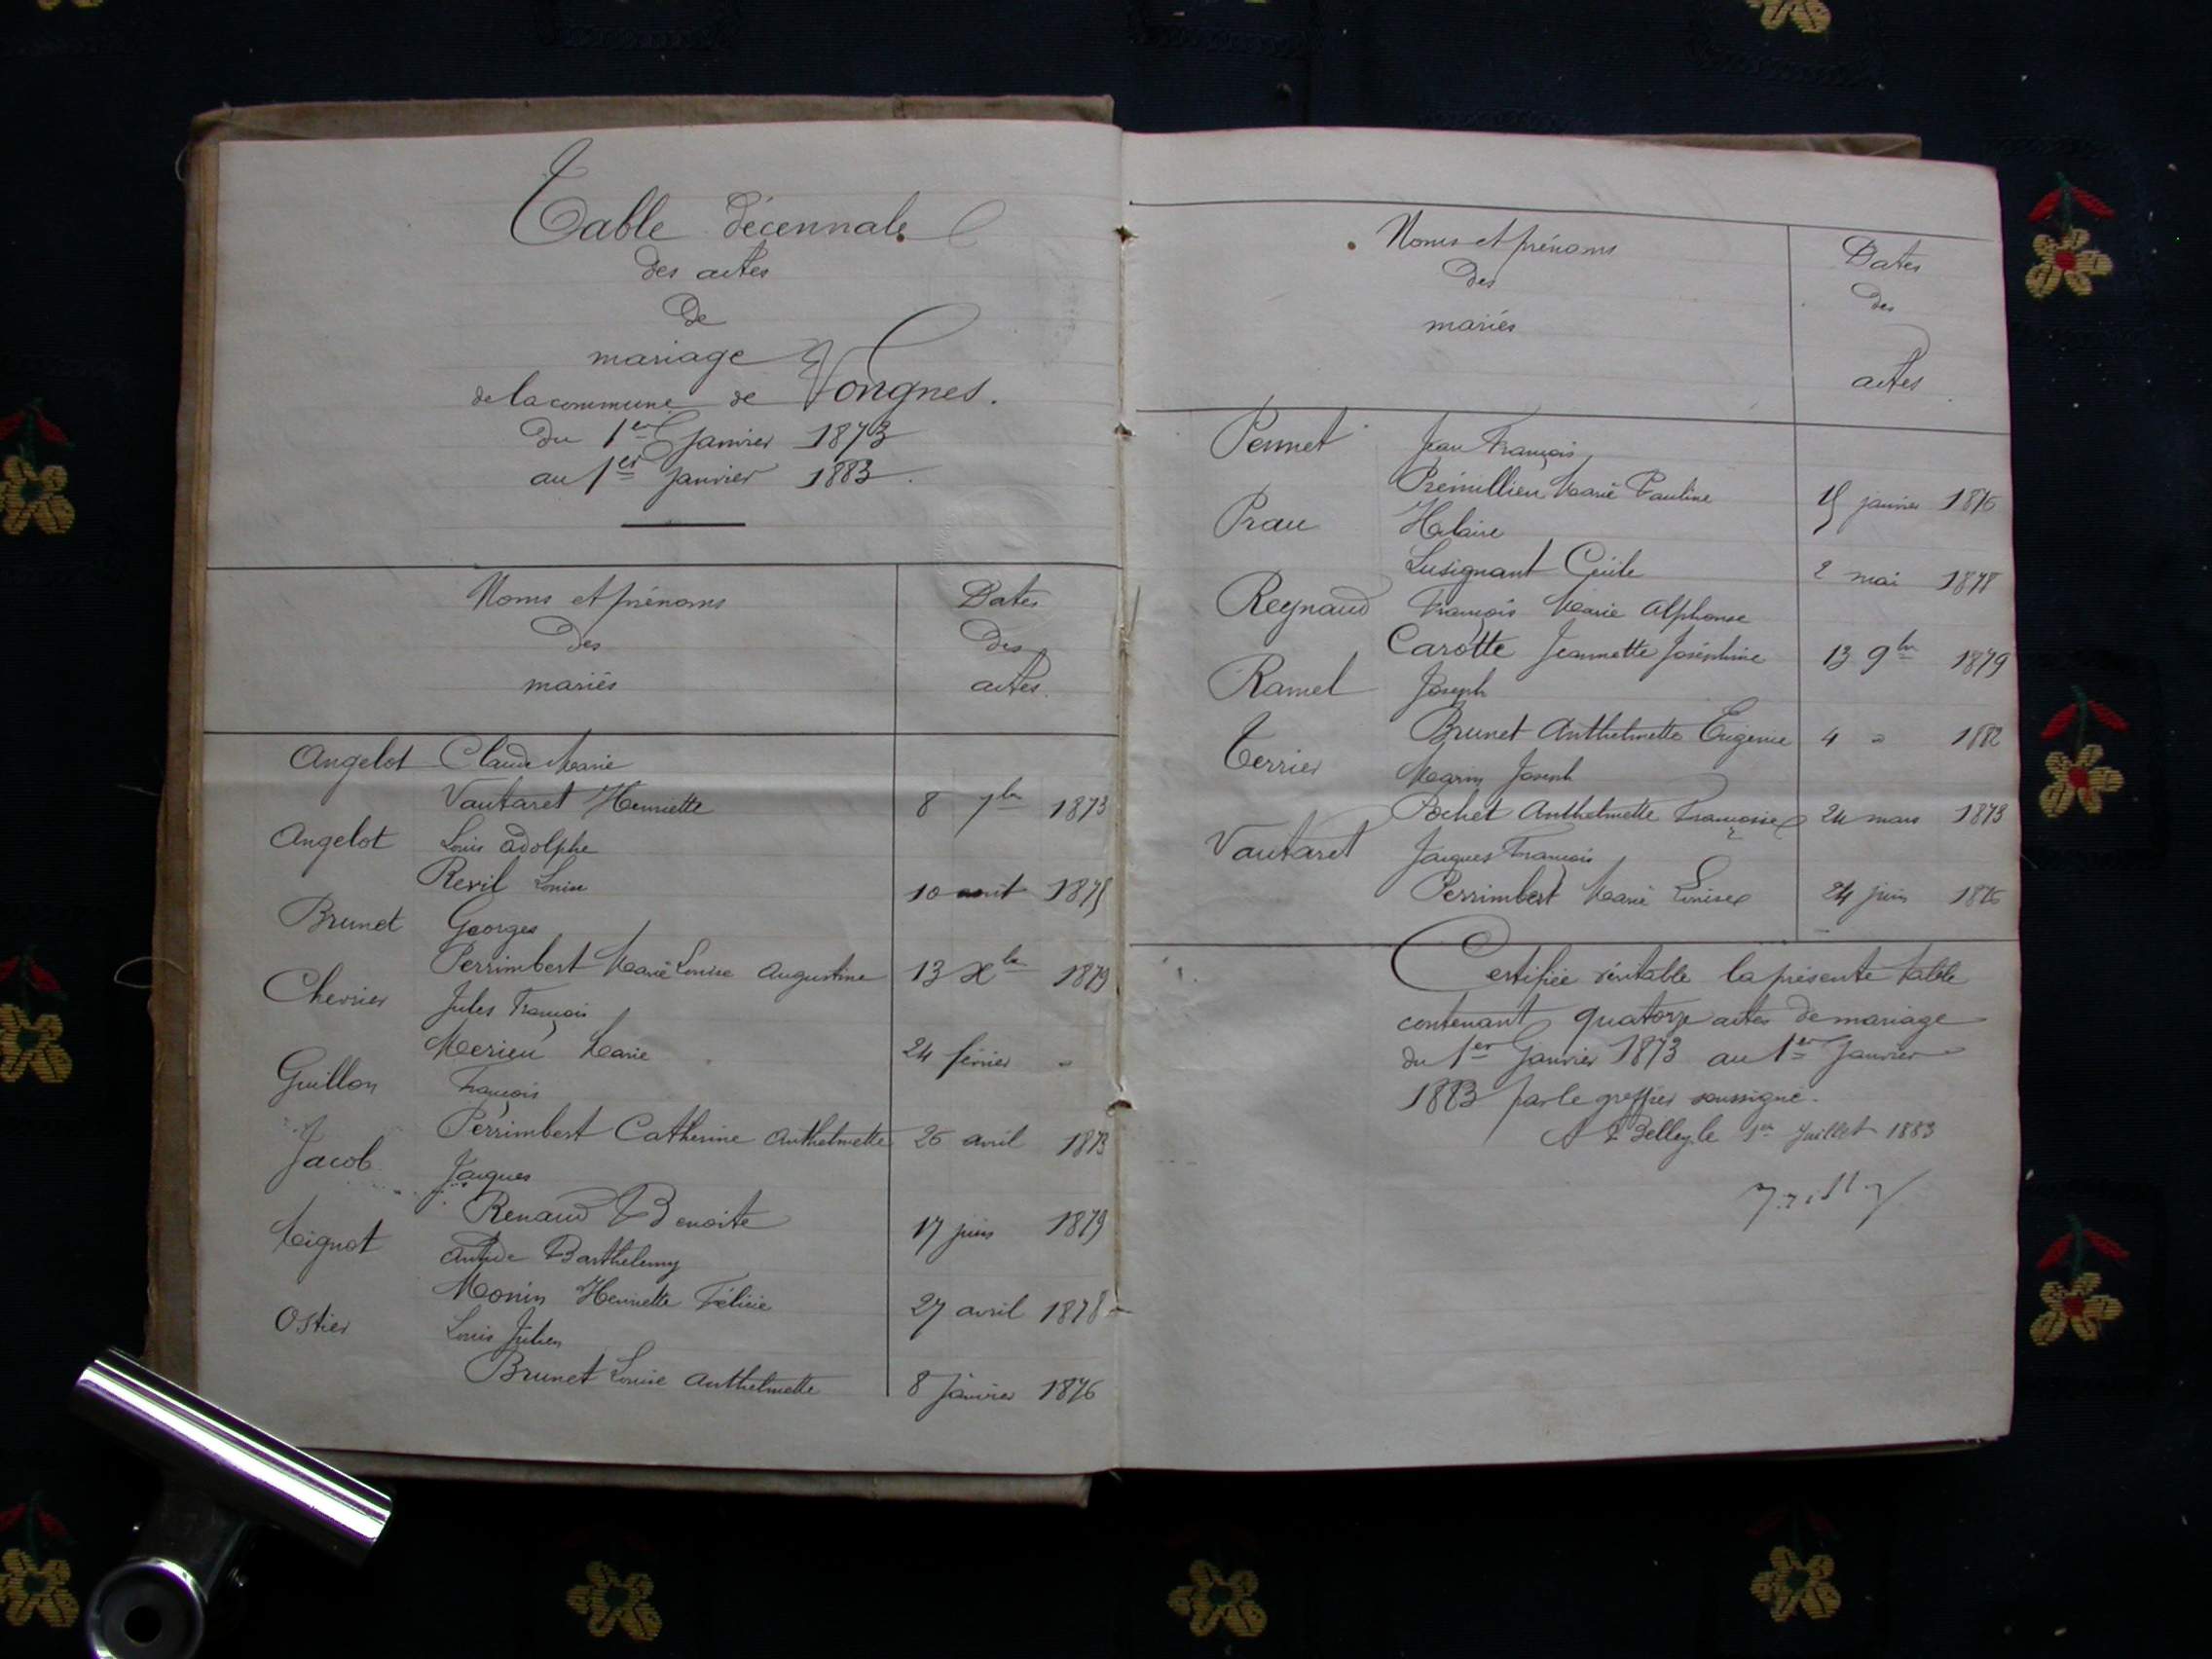 Table décennale
des actes
de
mariage
de la commune de Vongnes.
du 1er Janvier 1873
au 1er Janvier 1883.
Noms et prénoms
des
mariés
Dates
des
actes.
Angelot Claude Marie
Vautaret Henriette 8 7bre 1873
Angelot Louis Adolphe
Revil Louise 10 août 1875
Brunet Georges
Perrimbert Marie Louise Augustine 13 Xbre 1879
Chevrier Jules François
Merieu Marie 24 février "
Guillon François
Perrimbert Catherine Anthelmette 26 avril 1873
Jacob Jacques
Renaud Benoite 17 juin 1879
Mignot Barthélemy
Monin Henriette Félicie 27 avril 1878
Ostier Louis Julien
Brunet Louise Anthelmette 8 Janvier 1876
Noms et prénoms
des
mariés
Dates
des
actes
Pennet Jean François
Prémillieu Marie Pauline 15 janvier 1876
Prau Hilaire
Lusignant Cécile 2 mai 1878
Reynaud François Marie Alphonse
Carotte Jeannette Joséphine 13 9bre 1879
Ramel Joseph
Brunet Anthelmette Eugénie 4 " 1882
Terrier Marin Joseph
Pochet Anthelmette Françoise 24 mars 1873
Vautaret Jacques François
Perrimbert Marie Louise 24 juin 1876
Certifiée véritable la présente table
contenant quatorze actes de mariage
du 1er Janvier 1873 au 1er Janvier
1883 par le greffier soussigné.
A Belley, le 1er Juillet 1883